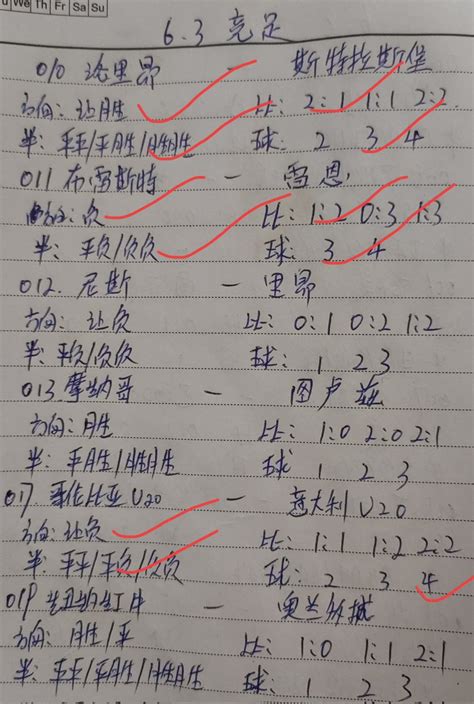 u We Th Fr Sa Su
6.3 充足
010 洛里昂 — 斯特拉斯堡
方向: 让胜 比: 2:1 1:1 2:2
半: 平平/平胜/胜胜 球: 2 3 4
011 布雷斯特 — 雷恩
方向: 负 比: 1:2 0:3 1:3
半: 平负/负负 球: 3 4
012. 尼斯 — 里昂
方向: 让负 比: 0:1 0:2 1:2
半: 平负/负负 球: 1 2 3
013 摩纳哥 — 图卢兹
方向: 胜 比: 1:0 2:0 2:1
半: 平胜/胜胜 球: 1 2 3
017 哥伦比亚U20 — 意大利U20
方向: 让负 比: 1:1 1:2 2:2
半: 平平/平负/负负 球: 2 3 4
019 兰丑纳红牛 — 奥兰多城
方向: 胜/平 比: 1:0 1:1 2:1
半: 平平/平胜/胜胜 球: 1 2 3